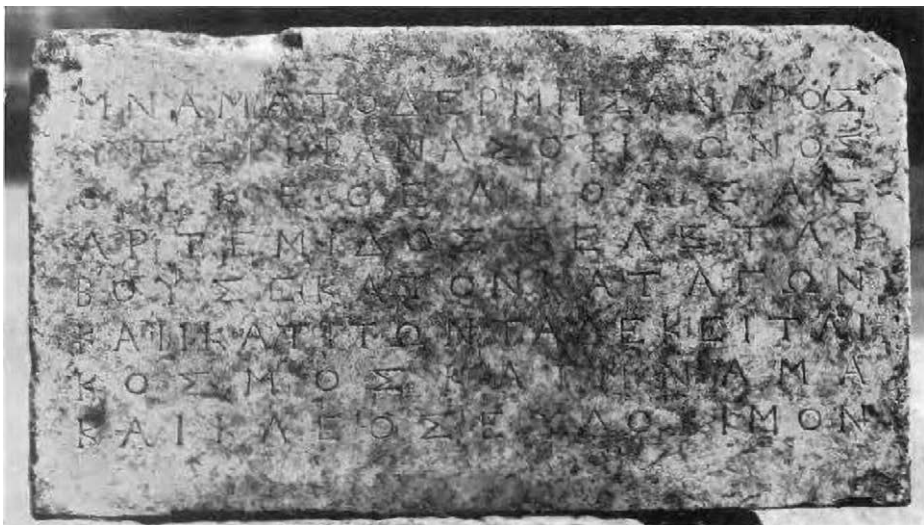 ΜΝΑΜΑΤΟΔΕΡΜΗΣΑΝΔΡΟΣ
ΥΠΕΡΚΡΑΝΑΣΟΦΙΛΩΝΟΣ
ΘΗΚΕΘΕΑΙΘΥΣΑΣ
ΑΡΤΕΜΙΔΟΣΤΕΛΕΤΑΙ
ΒΟΥΣΕΚΑΤΟΝΚΑΤΑΓΩΝ
ΚΑΙΙΚΑΤΙΤΩΝΤΑΔΕΚΕΙΤΑΙ
ΚΟΣΜΟΣΚΑΙΜΝΑΜΑ
ΚΑΙΚΛΕΟΣΕΥΔΟΚΙΜΟΝ